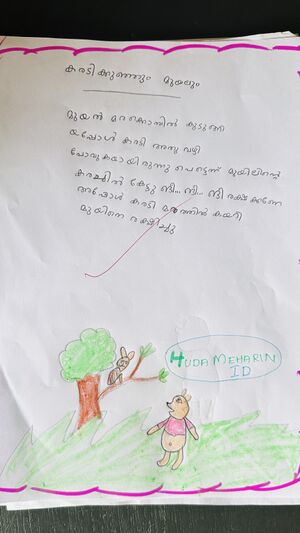 കരടിക്കുഞ്ഞും മുയലും
മുയൽ മരക്കൊമ്പിൽ കുടുങ്ങി
യപ്പോൾ കരടി അതു വഴി
പോവുകയായിരുന്നു പെട്ടെന്ന് മുയിലിന്റെ
കരച്ചിൽ കേട്ടു ങ്ങീ... ങ്ങീ... ങ്ങീ രക്ഷിക്കണേ
അപ്പോൾ കരടി മരത്തിൽ കയറി
മുയിനെ രക്ഷിച്ചു
HUDA MEHARIN
ID